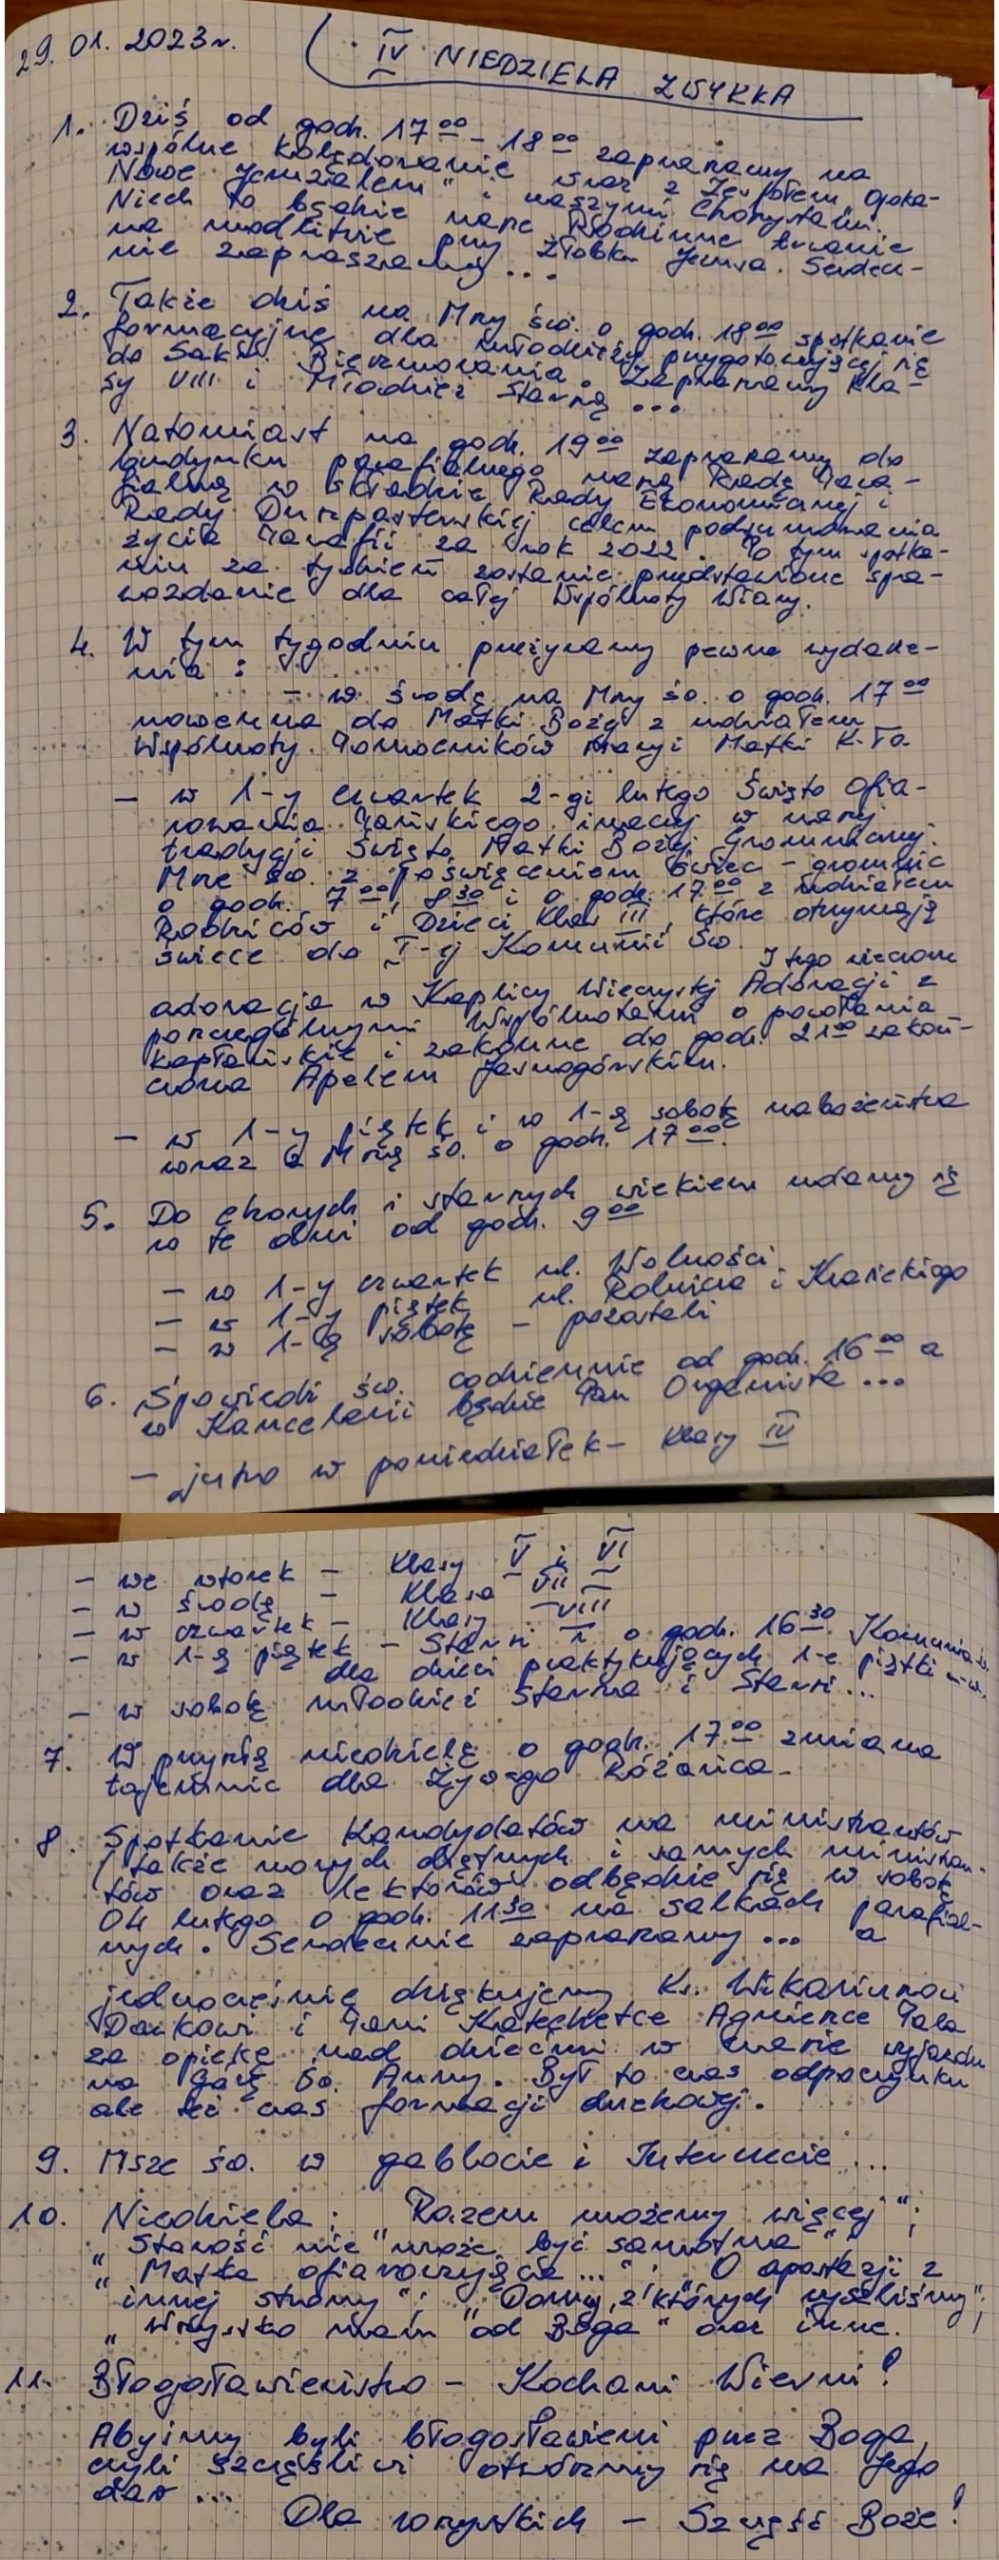 29.01.2023r.
IV NIEDZIELA ZWYKŁA
1. Dziś od godz. 17ºº - 18ºº zapraszamy na
wspólne kolędowanie wraz z Zespołem
Nowe Jeruzalem" i naszymi Chórystami.
Niech to będzie nasze Rodzinne trwanie
na modlitwie przy Żłobku Jezusa. Serdecz-
nie zapraszamy ...
2. Także dziś na Mszy św. o godz. 18ºº spotkanie
formacyjne dla młodzieży przygotowującej się
do Sakr. Bierzmowania. Zapraszamy kla-
sy VIII i Młodzież starszą ...
3. Natomiast na godz. 19ºº zapraszamy do
budynku parafialnego naszą Radę Para-
fialną w składzie Rady Ekonomicznej i
Rady Duszpasterskiej celem podsumowania
życia Parafii za rok 2022. Po tym spotka-
niu za tydzień zostanie przedstawione spra-
wozdanie dla całej Wspólnoty Wiary.
4. W tym tygodniu przeżywamy pewne wydarze-
nia :
- w środę na Mszy św. o godz. 17ºº
nowenna do Matki Bożej z udziałem
Wspólnoty Pomocników Maryi Matki K-ła.
- w 1-y czwartek 2-gi lutego Święto Ofia-
rowania Pańskiego inaczej w naszej
tradycji Święto Matki Bożej Gromnicznej.
Msze św. z poświęceniem świec - gromnic
o godz. 7ºº, 8³⁰ i o godz. 17ºº z udziałem
Rodziców i Dzieci klas III, które otrzymają
świece do I-ej Komunii Św. I tego wieczoru
adoracja w Kaplicy Wieczystej Adoracji z
poszczególnymi Wspólnotami o powołania
kapłańskie i zakonne do godz. 21ºº zakoń-
czona Apelem Jasnogórskim.
- w 1-y piątek i w 1-ą sobotę nabożeństwa
wraz z Mszą św. o godz. 17ºº.
5. Do chorych i starszych wiekiem udamy się
w te dni od godz. 9ºº
- w 1-y czwartek ul. Wolności
- w 1-y piątek ul. Rolnicza i Krasickiego
- w 1-ą sobotę - pozostali
6. Spowiedź św. codziennie od godz. 16ºº a
w Kancelarii będzie Pan Organista ...
- jutro w poniedziałek - klasy IV
- we wtorek - klasy V i VI
- w środę - klasa VII
- w czwartek - klasy VIII
- w 1-ą piątek - Starsi i o godz. 16³⁰. Komunia
dla dzieci praktykujących 1-e piątki m-ca.
- w sobotę młodzież starsza i starsi ...
7. W przyszłą niedzielę o godz. 17ºº zmiana
tajemnic dla Żywego Różańca -
8. Spotkanie kandydatów na ministrantów
(także nowych chętnych i samych ministran-
tów oraz lektorów odbędzie się w sobotę
04 lutego o godz. 11³⁰ na salkach parafial-
nych. Serdecznie zapraszamy ... a
jednocześnie dziękujemy Ks. Wikariuszowi
i Pani Katechetce Agnieszce Pala
za opiekę nad dziećmi w czasie wyjazdu
na Górę Św. Anny. Był to czas odpoczynku
ale też czas formacji duchowej.
9. Msze św. w gablocie i Internecie ...
10. Niedziela : Razem możemy więcej";
„Starość nie może być samotna";
„Matka ofiarowująca ..."; O apostazji z
innej strony"; „Domy, z których wyszliśmy";
„Wszystko mam od Boga" oraz inne.
11. Błogosławieństwo - Kochani Wierni!
Abyśmy byli błogosławieni przez Boga,
czyli szczęśliwi otwórzmy się na Jego
dar ...
Dla wszystkich - Szczęść Boże!